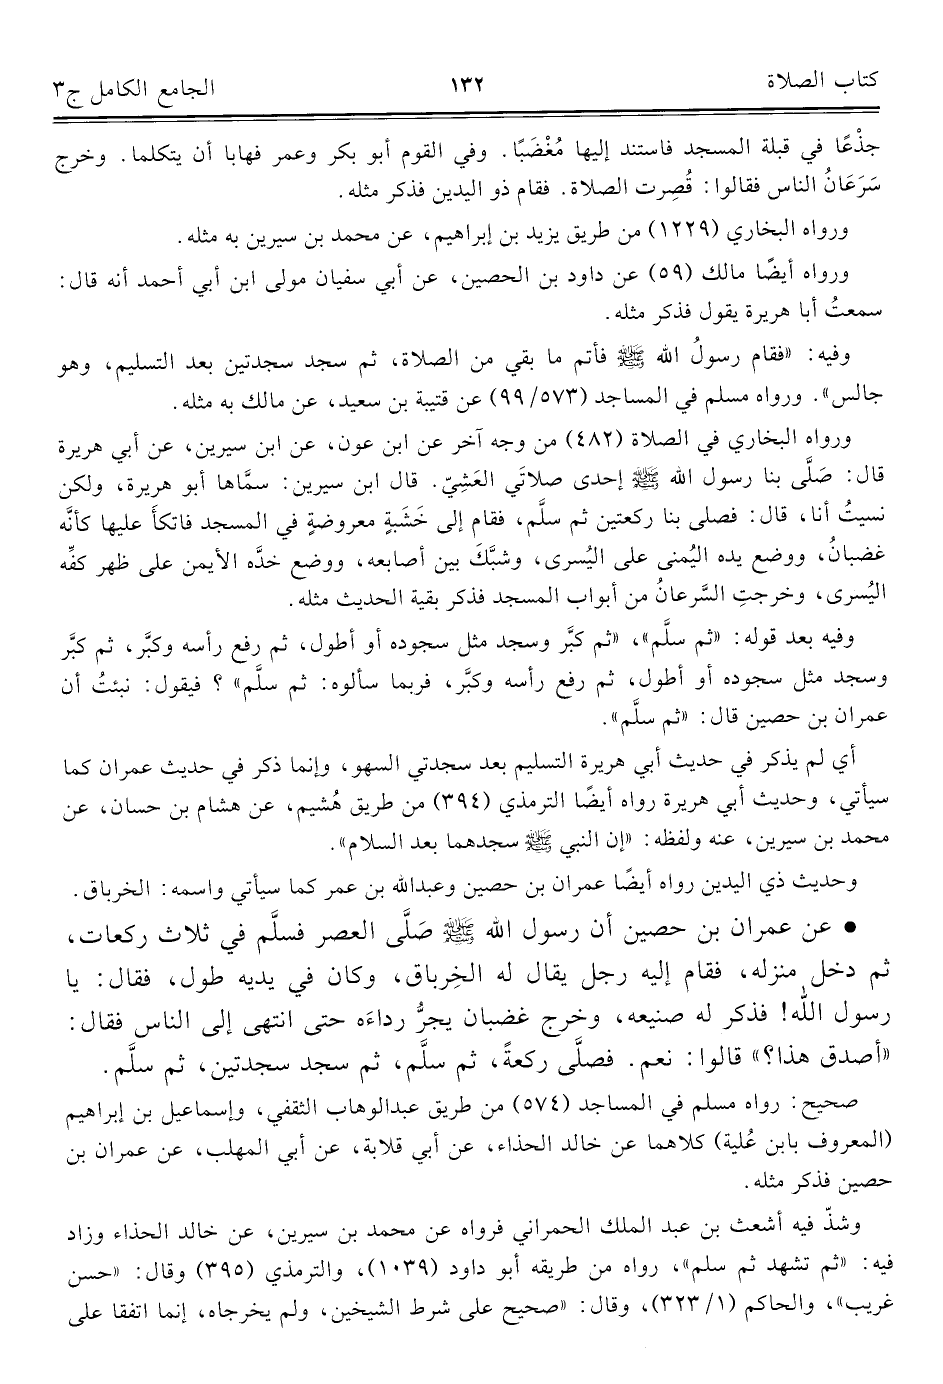 كتاب الصلاة ١٣٢ الجامع الكامل ج٣
جذْعًا في قبلة المسجد فاستند إليها مُغْضَبًا. وفي القوم أبو بكر وعمر فهابا أن يتكلما. وخرج
سَرَعَانُ الناس فقالوا: قُصِرت الصلاة. فقام ذو اليدين فذكر مثله.
ورواه البخاري (١٢٢٩) من طريق يزيد بن إبراهيم، عن محمد بن سيرين به مثله.
ورواه أيضًا مالك (٥٩) عن داود بن الحصين، عن أبي سفيان مولى ابن أبي أحمد أنه قال:
سمعتُ أبا هريرة يقول فذكر مثله.
وفيه: «فقام رسولُ الله ﷺ فأتم ما بقي من الصلاة، ثم سجد سجدتين بعد التسليم، وهو
جالس». ورواه مسلم في المساجد (٥٧٣/ ٩٩) عن قتيبة بن سعيد، عن مالك به مثله.
ورواه البخاري في الصلاة (٤٨٢) من وجه آخر عن ابن عون، عن ابن سيرين، عن أبي هريرة
قال: صَلَّى بنا رسول الله ﷺ إحدى صلاتَي العَشِيّ. قال ابن سيرين: سمَّاها أبو هريرة، ولكن
نسيتُ أنا، قال: فصلى بنا ركعتين ثم سلَّم، فقام إلى خَشَبةٍ معروضةٍ في المسجد فاتكأ عليها كأنَّه
غضبانُ، ووضع يده اليُمنى على اليُسرى، وشبَّكَ بين أصابعه، ووضع خدَّه الأيمن على ظهر كفِّه
اليُسرى، وخرجتِ السَّرعانُ من أبواب المسجد فذكر بقية الحديث مثله.
وفيه بعد قوله: «ثم سلَّم»، «ثم كبَّر وسجد مثل سجوده أو أطول، ثم رفع رأسه وكبَّر، ثم كبَّر
وسجد مثل سجوده أو أطول، ثم رفع رأسه وكبَّر، فربما سألوه: ثم سلَّم» ؟ فيقول: نبئتُ أن
عمران بن حصين قال: «ثم سلَّم».
أي لم يذكر في حديث أبي هريرة التسليم بعد سجدتي السهو، وإنما ذكر في حديث عمران كما
سيأتي، وحديث أبي هريرة رواه أيضًا الترمذي (٣٩٤) من طريق هُشيم، عن هشام بن حسان، عن
محمد بن سيرين، عنه ولفظه: «إن النبي ﷺ سجدهما بعد السلام».
وحديث ذي اليدين رواه أيضًا عمران بن حصين وعبدالله بن عمر كما سيأتي واسمه: الخرباق.
• عن عمران بن حصين أن رسول الله ﷺ صَلَّى العصر فسلَّم في ثلاث ركعات،
ثم دخل منزله، فقام إليه رجل يقال له الخِرباق، وكان في يديه طول، فقال: يا
رسول الله! فذكر له صنيعه، وخرج غضبان يجرُّ رداءَه حتى انتهى إلى الناس فقال:
«أصدق هذا؟» قالوا: نعم. فصلَّى ركعةً، ثم سلَّم، ثم سجد سجدتين، ثم سلَّم.
صحيح: رواه مسلم في المساجد (٥٧٤) من طريق عبدالوهاب الثقفي، وإسماعيل بن إبراهيم
(المعروف بابن عُلية) كلاهما عن خالد الحذاء، عن أبي قلابة، عن أبي المهلب، عن عمران بن
حصين فذكر مثله.
وشذّ فيه أشعث بن عبد الملك الحمراني فرواه عن محمد بن سيرين، عن خالد الحذاء وزاد
فيه: «ثم تشهد ثم سلم»، رواه من طريقه أبو داود (١٠٣٩)، والترمذي (٣٩٥) وقال: «حسن
غريب»، والحاكم (١/ ٣٢٣)، وقال: «صحيح على شرط الشيخين، ولم يخرجاه، إنما اتفقا على